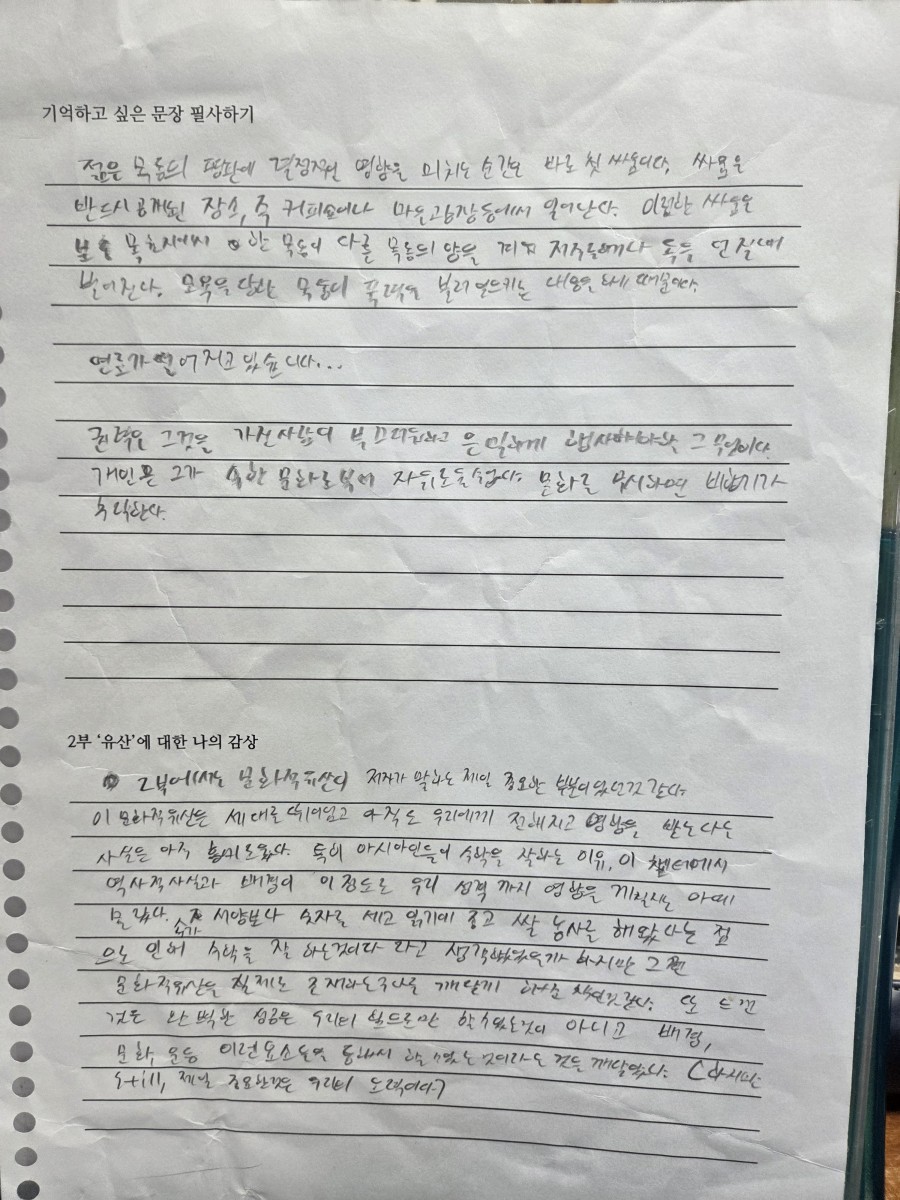 기억하고 싶은 문장 필사하기
젊은 목동의 평판에 결정적인 영향을 미치는 순간은 바로 첫 싸움이다. 싸움은
반드시 공개된 장소, 즉 커피숍이나 마을광장 등에서 일어난다. 이러한 싸움은
목초지에서 한 목동이 다른 목동의 양을 저주를 던질때
벌어진다. 모욕을 당한 목동이 폭력을 불러 일으키는 때문이다.
연료가 떨어지고 있습니다...
권력은 그것을 가진사람이 부끄러워하고 은밀하게 행사해야할 그 무엇이다.
개인은 그가 속한 문화로부터 자유로울수없다. 문화를 무시하면 비행기가
추락한다.
2부 '유산'에 대한 나의 감상
2부에서는 문화적유산이 저자가 말하는 제일 중요한 부분이었던것 같다.
이 문화적유산은 세대를 뛰어넘고 아직도 우리에게 전해지고 영향을 받는다는
사실은 아직 흥미로웠다. 특히 아시아인들이 수학을 잘하는 이유, 이 챕터에서
역사적사실과 배경이 이정도로 우리 성격까지 영향을 끼칠지는 아예
몰랐다. 숫자가 서양보다 숫자를 세고 읽기에 좋고 쌀 농사를 해왔다는 점
으로 인해 수학을 잘 하는것이다 라고 하지만 그런
문화적유산은 실제로 존재하는구나를 깨닫기 또 느낀
것은 완벽한 성공은 우리의 힘으로만 할수있는것이 아니고 배경,
문화, 운등 이런요소들을 통해서 할수있는것이라는 것을 깨달았다. (하지만
still, 제일 중요한것은 우리의 노력이다)